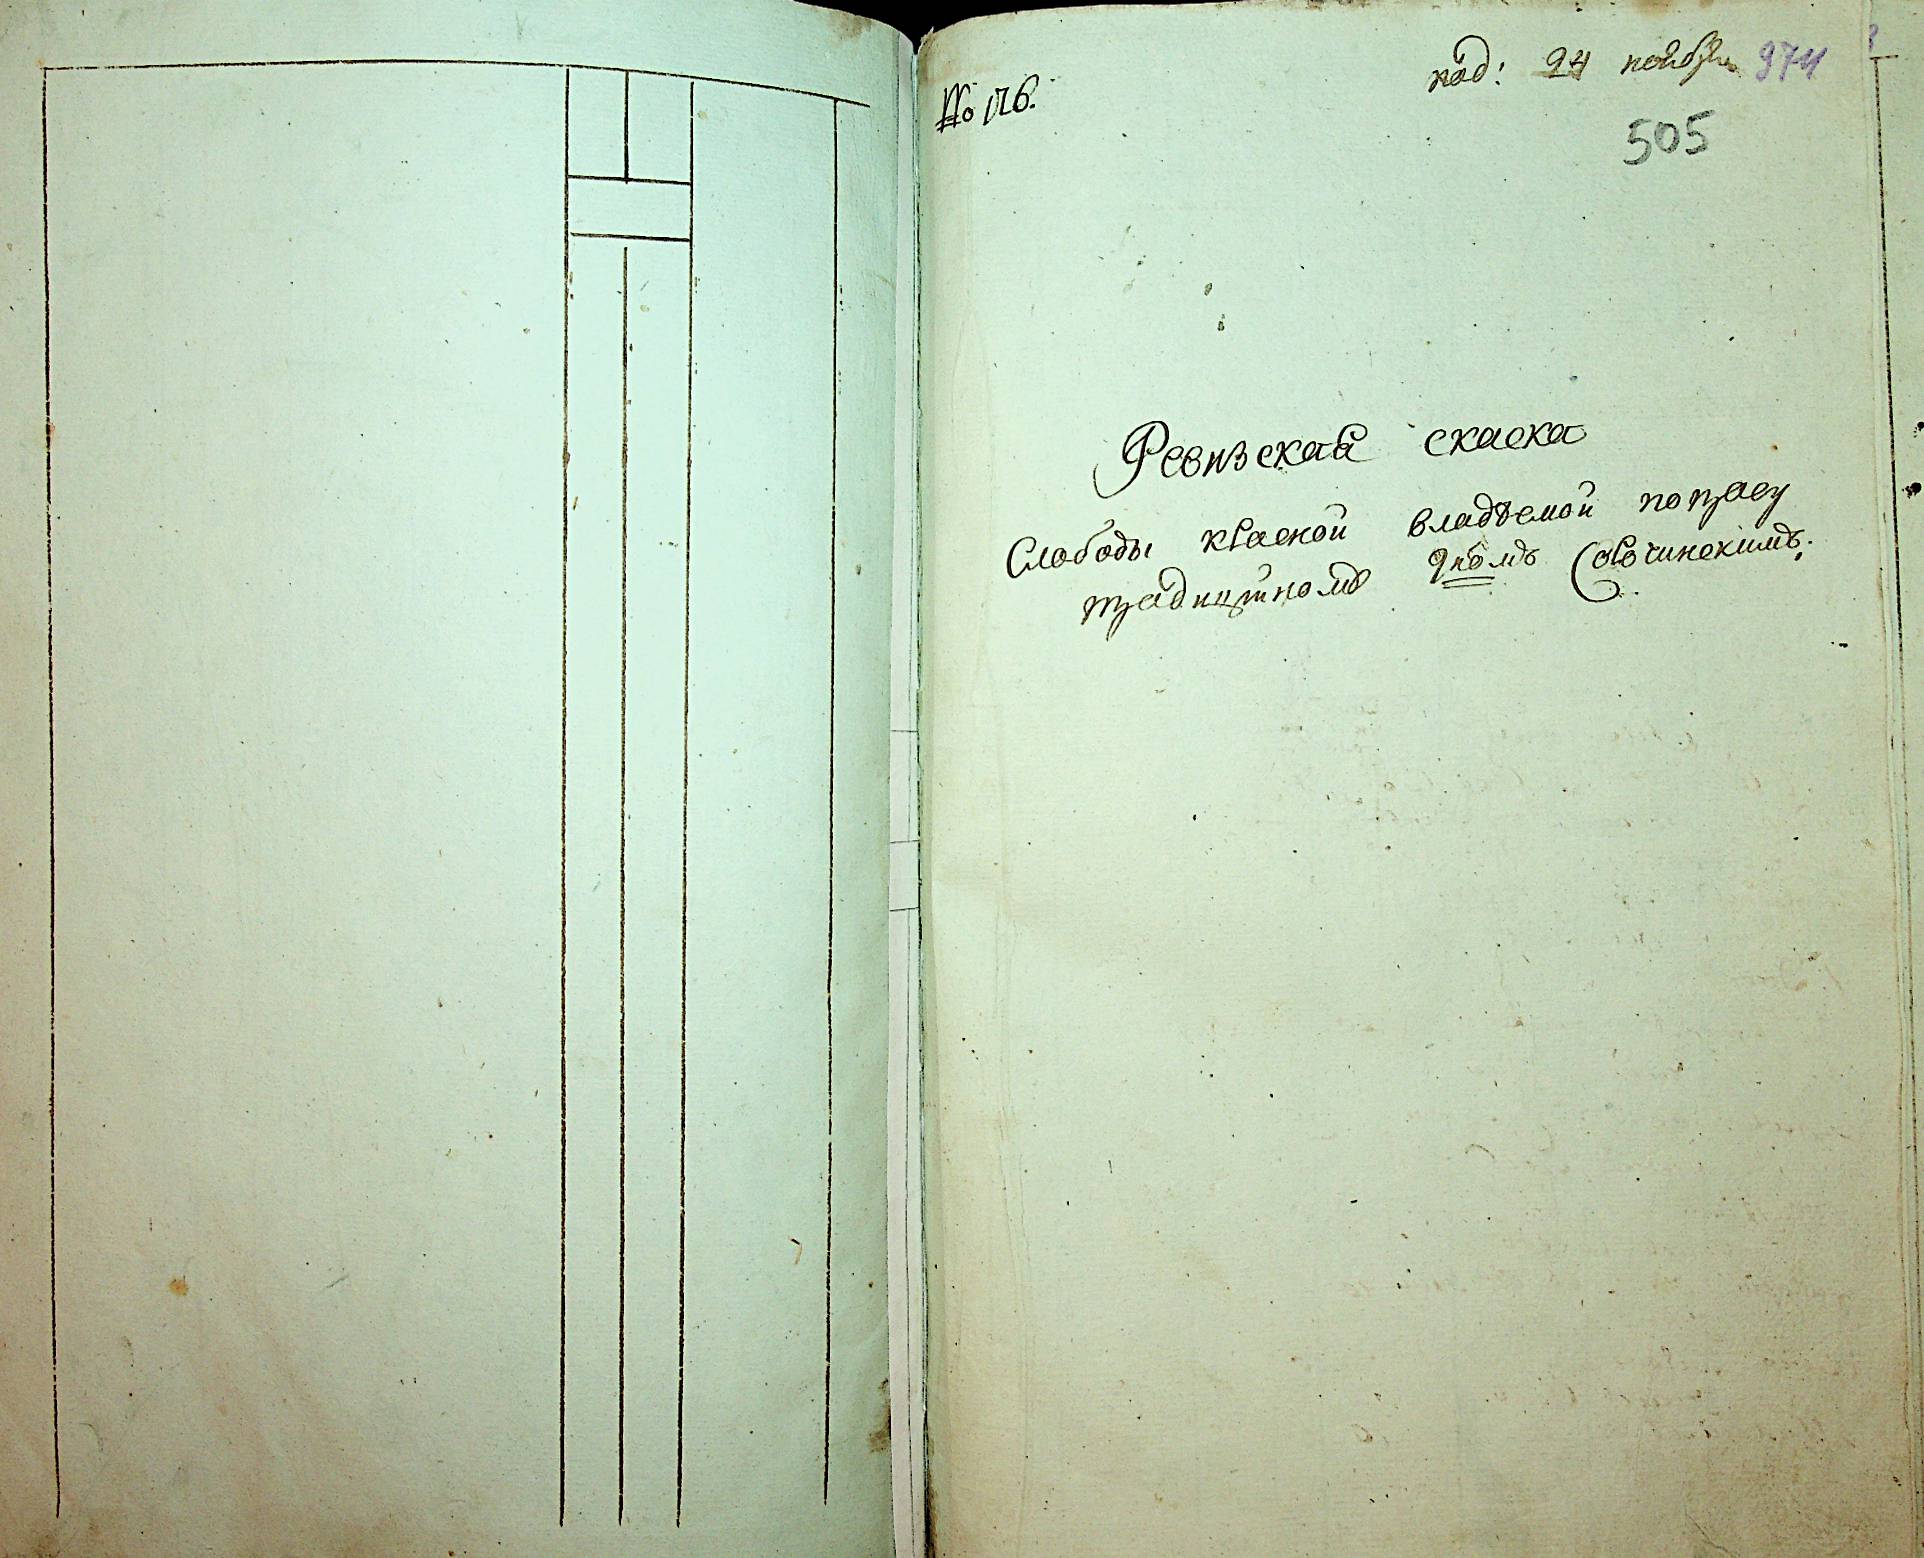 № 176.
под: 24 ноября 974
505
Ревизская скаска
Слободы красной владѣемой по праву
традициономъ Сорочинскимъ.